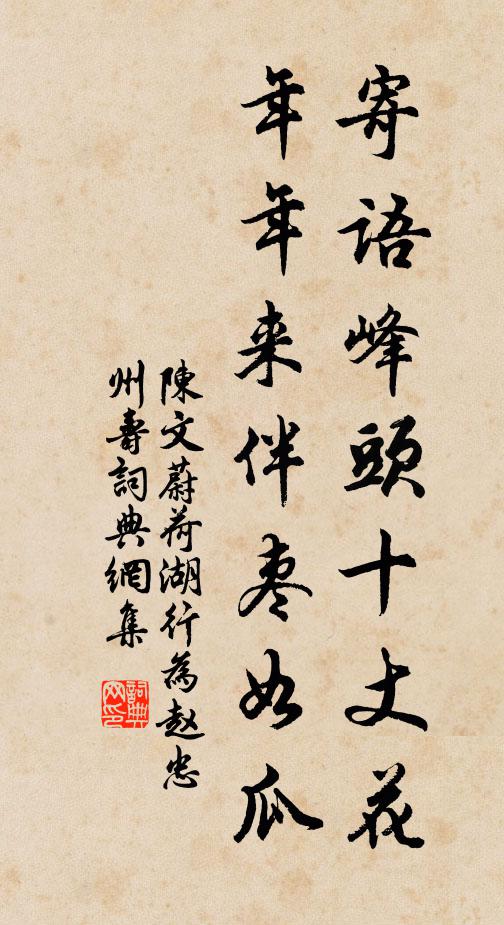 寄語峰頭十丈花
年年来伴枣如瓜
陳文蔚荷湖行為赵忠
州壽詞典網集
詞典
网印